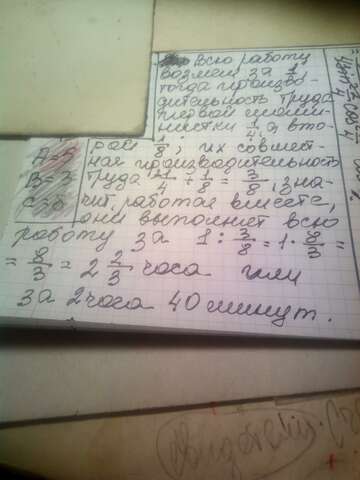 Всю работу
возьмем за 1,
тогда произво-
дительность труда
первой машин-
нистки 1/4, а вто-
рой 1/8, их совмест-
ная производительность
труда 1/4 + 1/8 = 3/8, зна-
чит, работая вместе,
они выполняет всю
работу за 1 : 3/8 = 1 · 8/3 =
= 8/3 = 2 2/3 часа или
за 2 часа 40 минут.
A=5
B=3